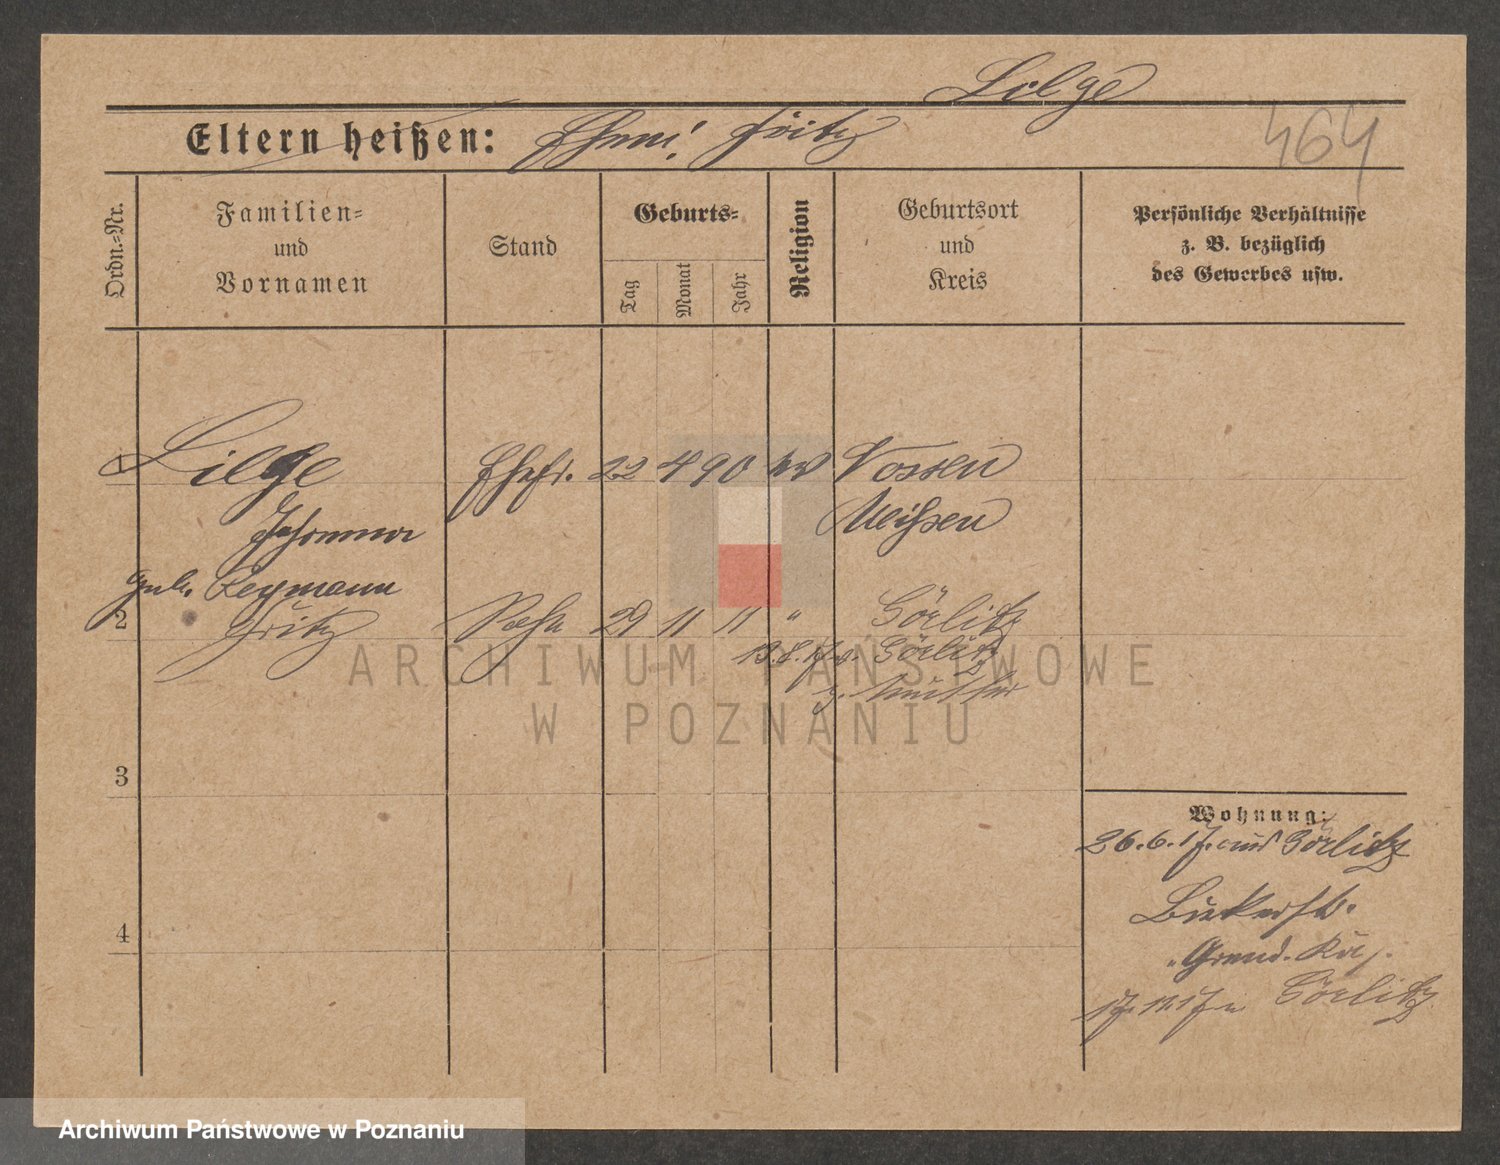 Lilge
Eltern heißen: Ehem: Fritz
464
Ordn.-Nr.
Familien-
und
Vornamen
Stand
Geburts-
Tag
Monat
Jahr
Religion
Geburtsort
und
Kreis
Persönliche Verhältnisse
z. B. bezüglich
des Gewerbes usw.
1 Lilge Ehefr. 22 4 90 ev Nossen
Johanna Meißen
geb. Leymann
2 Fritz Sohn 29 11 11 " Görlitz
13.8.17 n. Görlitz
z. Mutter
3
4
Wohnung:
26.6.17. aus Görlitz
Bukerstr.
Görlitz
ARCHIWUM PAŃSTWOWE
W POZNANIU
Archiwum Państwowe w Poznaniu